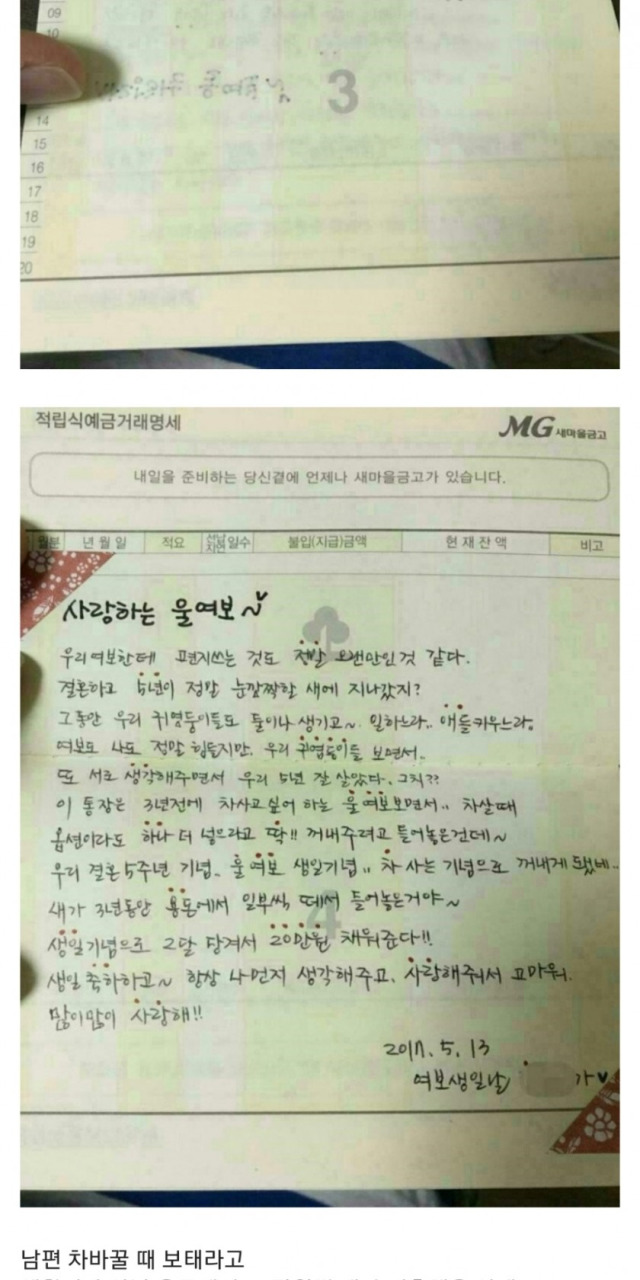 09
10
3
14
15
16
17
18
19
20
적립식예금거래명세
MG 새마을금고
내일을 준비하는 당신곁에 언제나 새마을금고가 있습니다.
월분 년월일 적요 일수 불입(지급)금액 현재잔액 비고
사랑하는 울여보~♥
우리여보한테 편지쓰는 것도 정말 오랜만인것 같다.
결혼하고 5년이 정말 눈깜짝할 새에 지나갔지?
그동안 우리 귀염둥이들도 둘이나 생기고~ 일하느라.. 애들키우느라,
여보도 나도 정말 힘들지만, 우리 귀염둥이들 보면서..
또 서로 생각해주면서 우리 5년 잘 살았다. 그치??
이 통장은 3년전에 차사고싶어 하는 울여보보면서.. 차살때
옵션이라도 하나 더 넣으라고 딱!! 꺼내주려고 들어놓은건데~
우리 결혼5주년 기념.. 울여보 생일기념.. 차 사는 기념으로 꺼내게 됐네..
내가 3년동안 용돈에서 일부씩 떼서 들어놓은거야~
4
생일기념으로 2달 당겨서 20만원 채워준다!!
생일 축하하고~ 항상 나먼저 생각해주고, 사랑해줘서 고마워.
많이많이 사랑해!!
2017. 5. 13
여보생일날 가♥
남편 차바꿀 때 보태라고